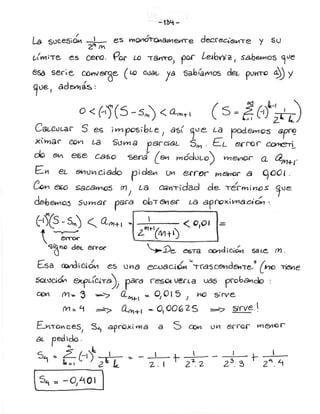 -134-
La sucesión 1/(2^m m) es monótonamente decreciente y su
Límite es cero. Por lo tanto, por Leibniz, sabemos que
esa serie converge (lo cual ya sabíamos del punto a)) y
que, además:
0 < (-1)^m (S - S_m) < a_{m+1} ( S = Σ_{k=1}^∞ (-1)^k 1/(2^k k) )
Calcular S es imposible, así que la podemos apro
ximar con la suma parcial S_m. El error cometi
do en ese caso será (en módulo) menor a a_{m+1}.
En el enunciado piden un error menor a 0,001.
Con eso sacamos m, la cantidad de términos que
debemos sumar para obtener la aproximación:
(-1)^m (S - S_m) < a_{m+1} = 1/(2^{m+1} (m+1)) < 0,01
error
signo del error De esta condición sale m.
Esa condición es una ecuación "trascendente" (no tiene
solución explícita); para resolverla vas probando:
con m = 3 => a_{m+1} = 0,015, no sirve
m = 4 => a_{m+1} = 0,00625 => sirve!
Entonces, S_4 aproxima a S con un error menor
al pedido.
S_4 = Σ_{k=1}^4 (-1)^k 1/(2^k k) = - 1/(2.1) + 1/(2^2.2) - 1/(2^3.3) + 1/(2^4.4)
S_4 = -0,401